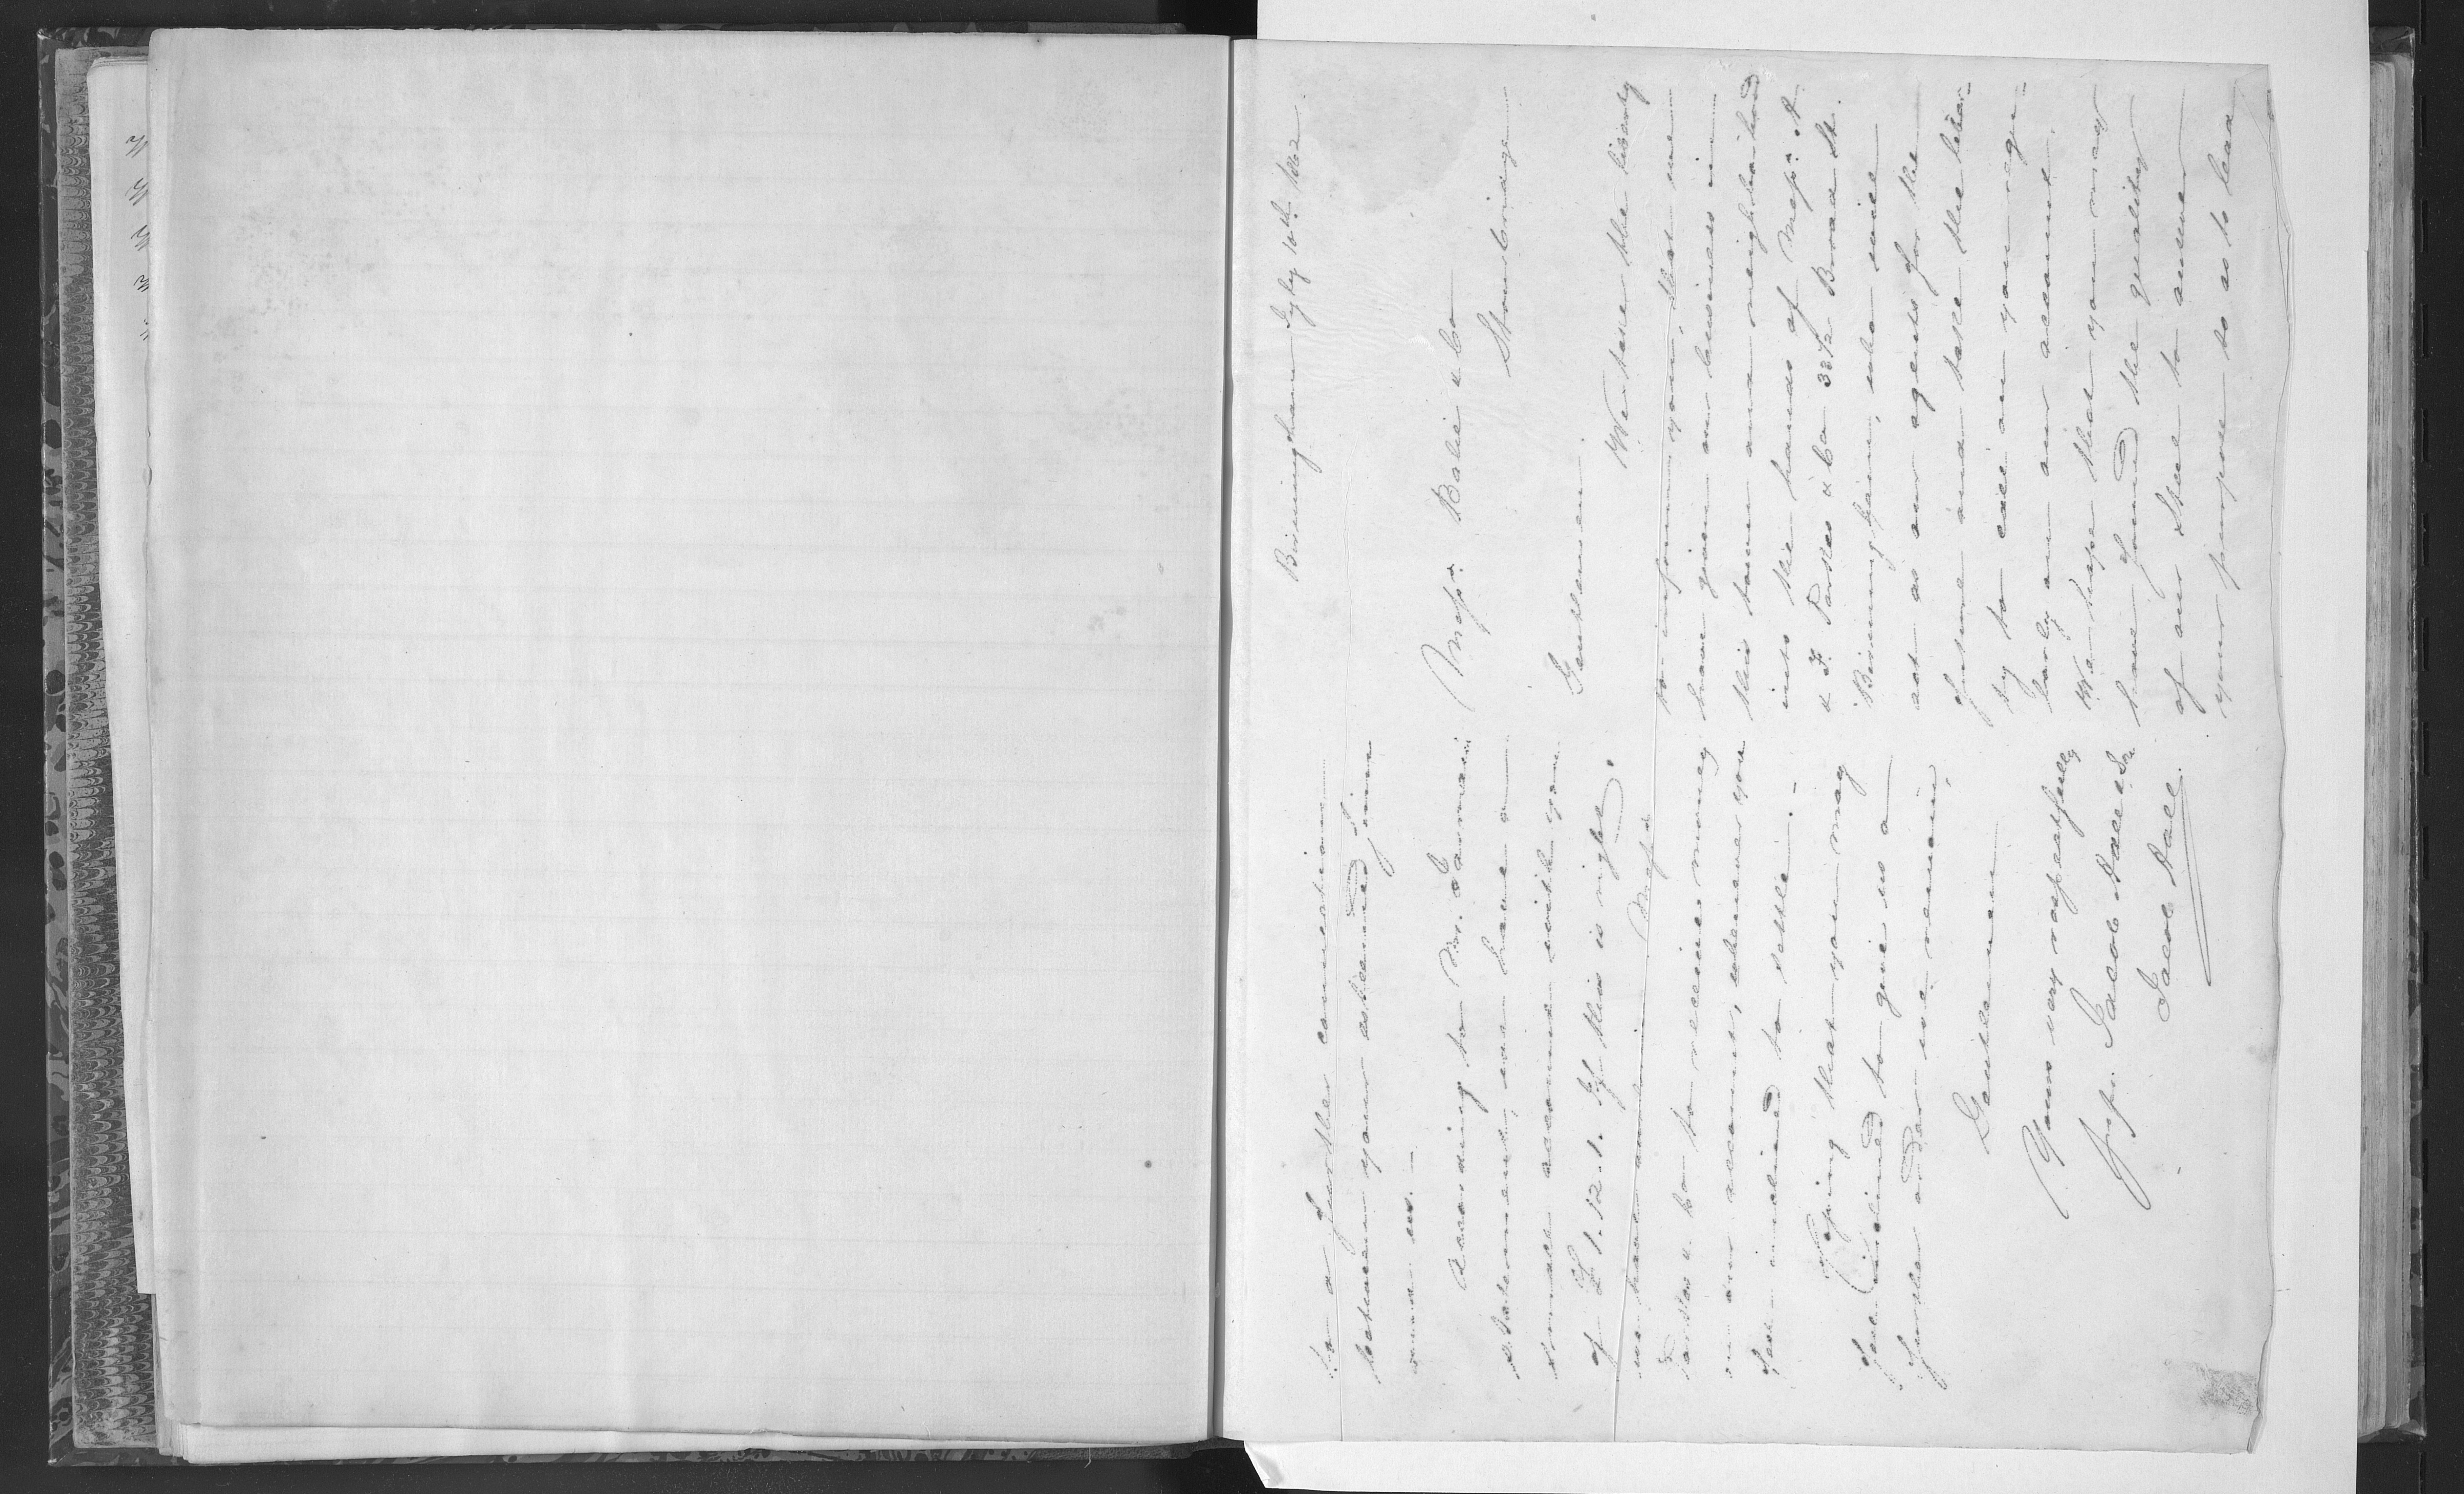 Birmingham July 10th 1862
Messrs. Balie & Co
Stourbridge
Gentlemen
We take the liberty
to inform you, that we
have given our business in
this town and neighborhood
into the hands of Messrs. A
& F. Parkes & Co 33½ Broad St.
Birmingham, who will
act as our agents for the
future and take the liber-
ty to call on you regu-
larly on our account.
We hope that you may
have found the quality
of our Steel to answer
your purpose so as to lead
to a further connection
between your esteemed firm
and us. —
According to Mr.
statement, we have a
small account with you
of £ 1.12.1. If this is right.
we have Messrs.
Parkes & Co to receive money
on our account, whenever you
feel inclined to settle. —
Hoping that you may
feel inclined to give us a
further order we remain,
Gentlemen
Yours very respectfully
Jacob
Jacob